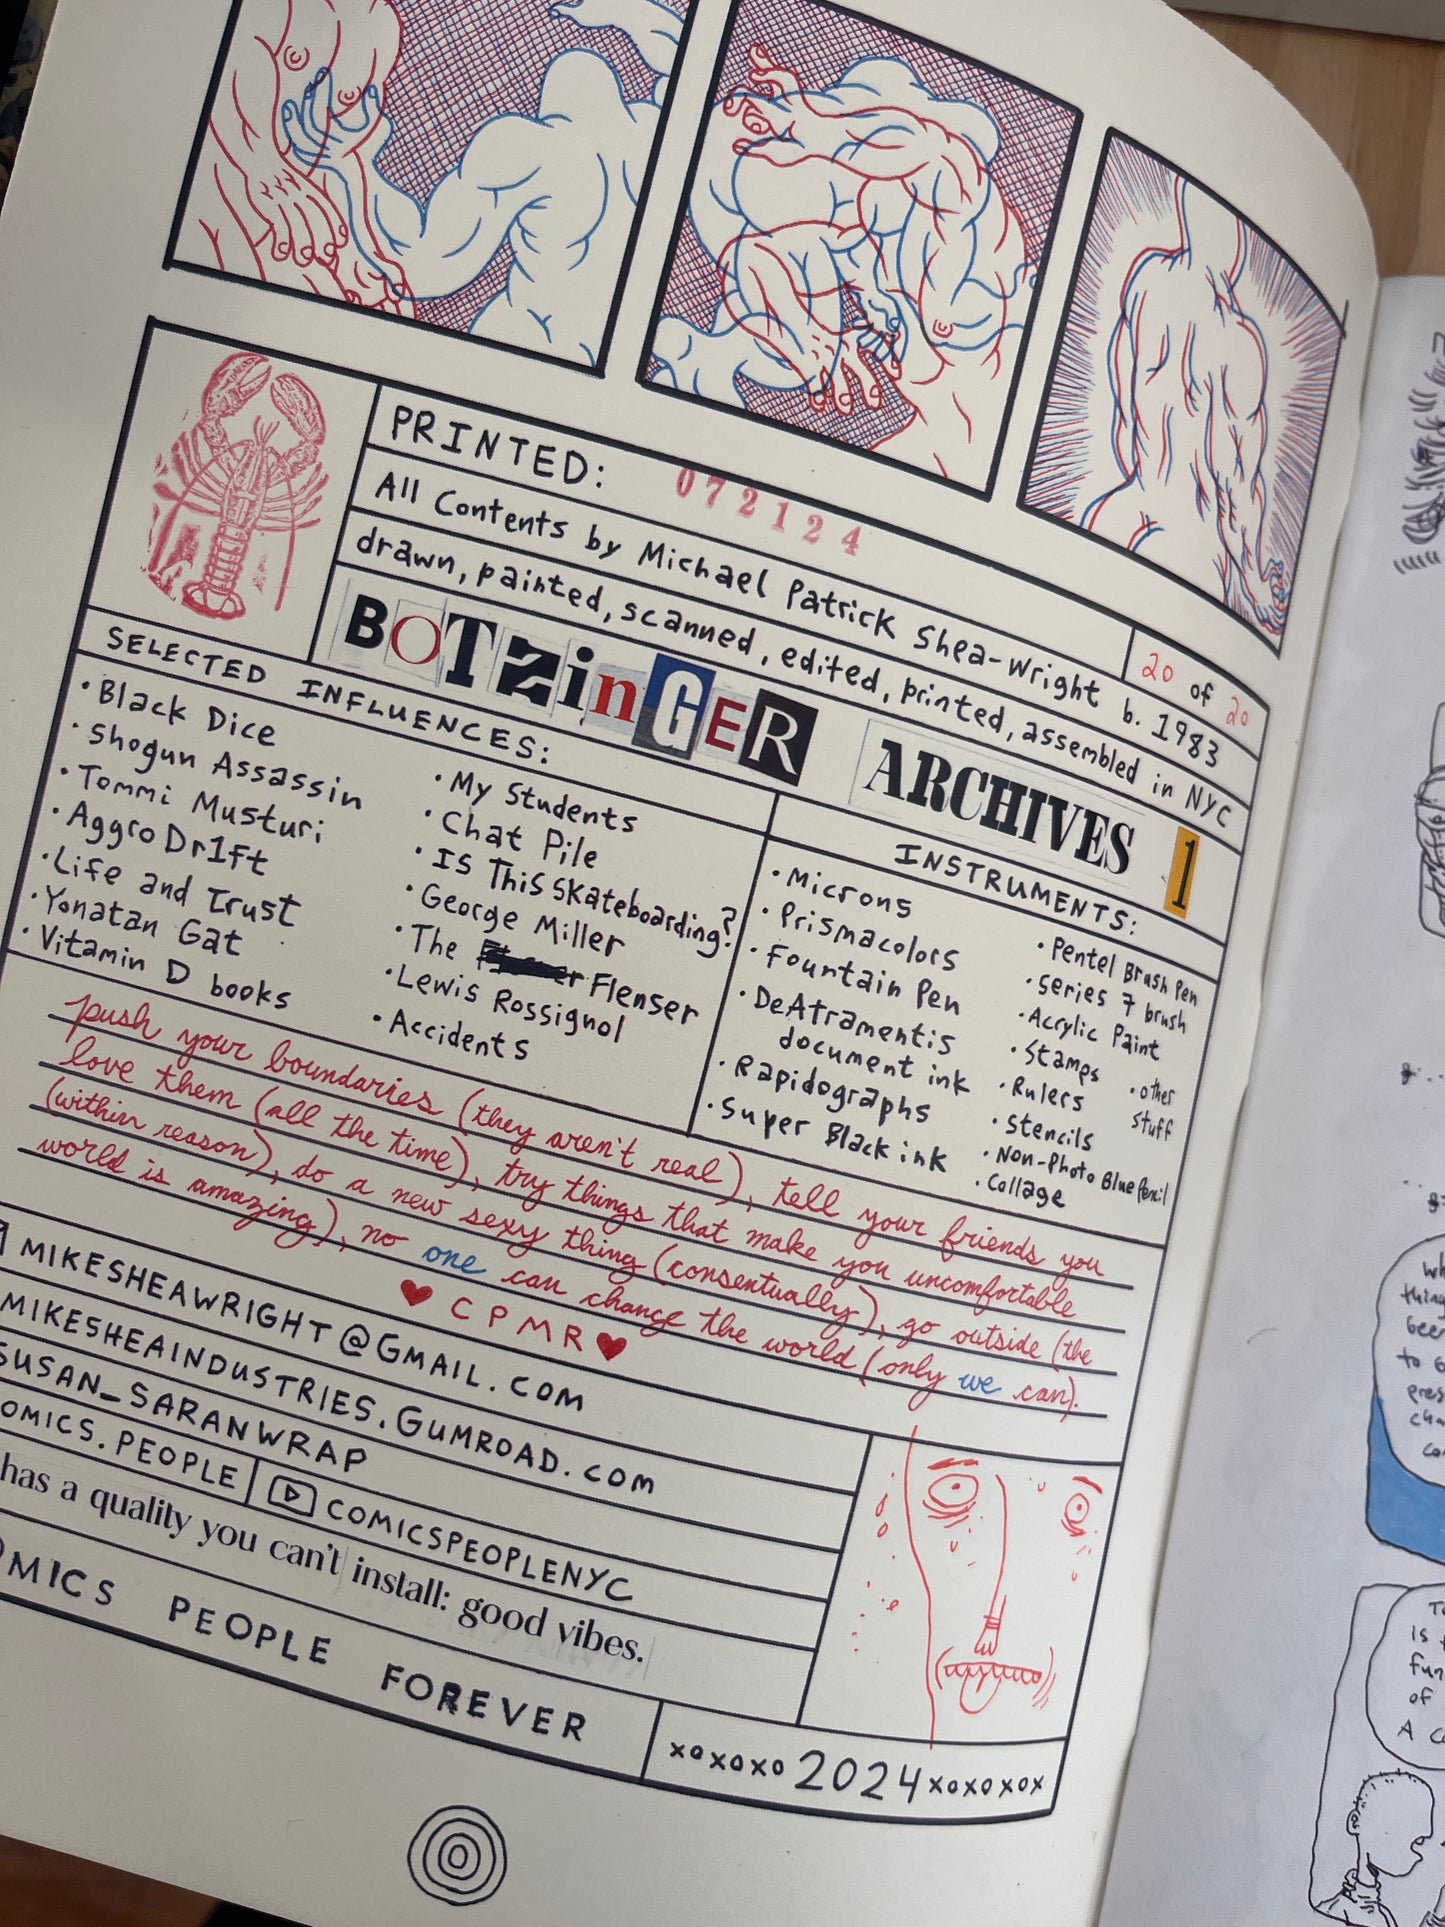 PRINTED: 072124
All Contents by Michael Patrick Shea-Wright b. 1983
20 of 20
drawn, painted, scanned, edited, printed, assembled in NYC
BOTZinGER ARCHIVES 1
SELECTED INFLUENCES:
• Black Dice
• Shogun Assassin
• Tommi Musturi
• Aggro Dr1ft
• Life and Trust
• Yonatan Gat
• Vitamin D books
• My Students
• Chat Pile
• Is This Skateboarding?
• George Miller
• The Flenser
• Lewis Rossignol
• Accidents
INSTRUMENTS:
• Microns
• Prismacolors
• Fountain Pen
• DeAtramentis
document ink
• Rapidographs
• Super Black ink
• Pentel Brush Pen
• Series 7 brush
• Acrylic Paint
• Stamps
• Rulers
• Stencils
• Non-Photo Blue Pencil
• Collage
• other
stuff
push your boundaries (they aren't real), tell your friends you
love them (all the time), try things that make you uncomfortable
(within reason), do a new sexy thing (consentually), go outside (the
world is amazing), no one can change the world (only we can).
♥ CPMR ♥
MIKESHEAWRIGHT@GMAIL.COM
MIKESHEAINDUSTRIES.GUMROAD.COM
SUSAN_SARANWRAP
OMICS.PEOPLE
COMICSPEOPLENYC
has a quality you can't install: good vibes.
OMICS PEOPLE FOREVER
xoxoxo 2024 xoxoxox